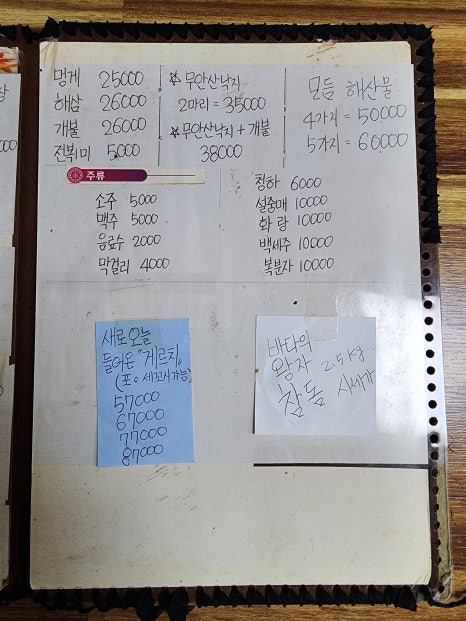 멍게 25000
해삼 26000
개불 26000
전복미 5000
☆ 무안산낙지
2마리 = 35000
☆무안산낙지 + 개불
38000
모듬 해산물
4가지 = 50000
5가지 = 60000
주류
소주 5000
맥주 5000
음료수 2000
막걸리 4000
청하 6000
설중매 10000
화랑 10000
백세주 10000
복분자 10000
새로 오늘
들어온 "게르치"
(포。세꼬시가능)
57000
67000
77000
87000
바다의
왕자 2.5kg
참돔 시세가